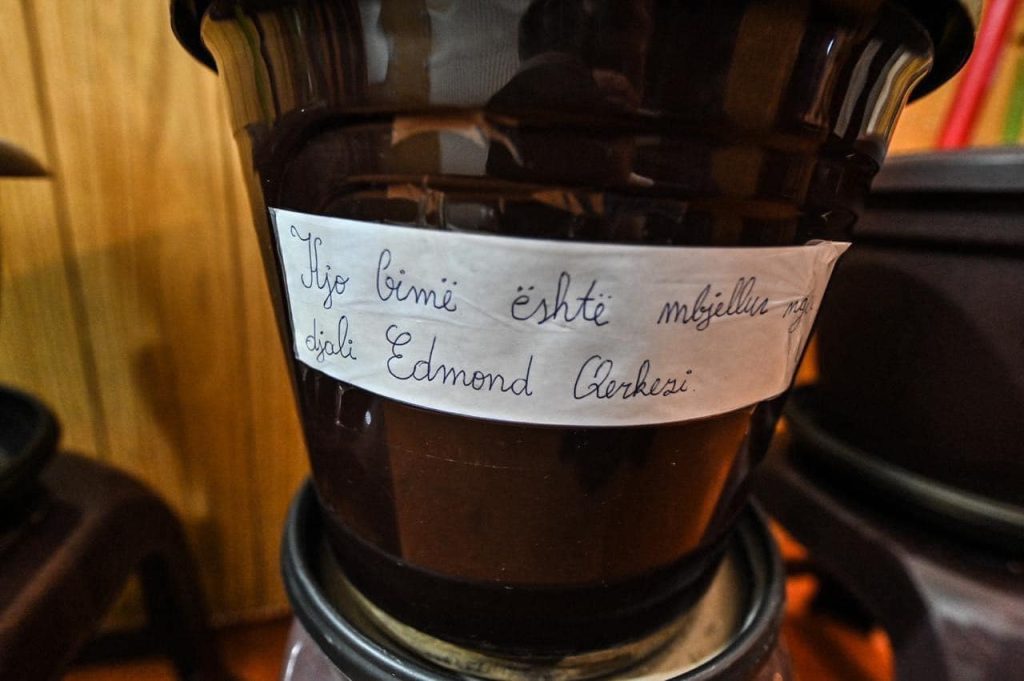 Kjo bimë është mbjellur nga
djali Edmond Qerkezi.